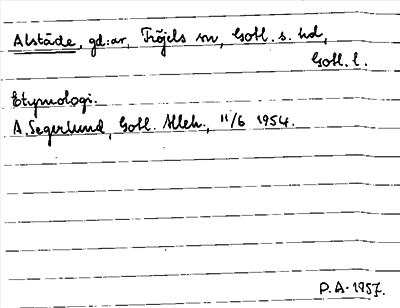 Alstäde, gd:ar, Fröjels sn, Gotl. s. hd,
Gotl. l.
Etymologi.
A. Segerlund, Gotl. Alleh., 11/6 1954.
P.A. 1957.